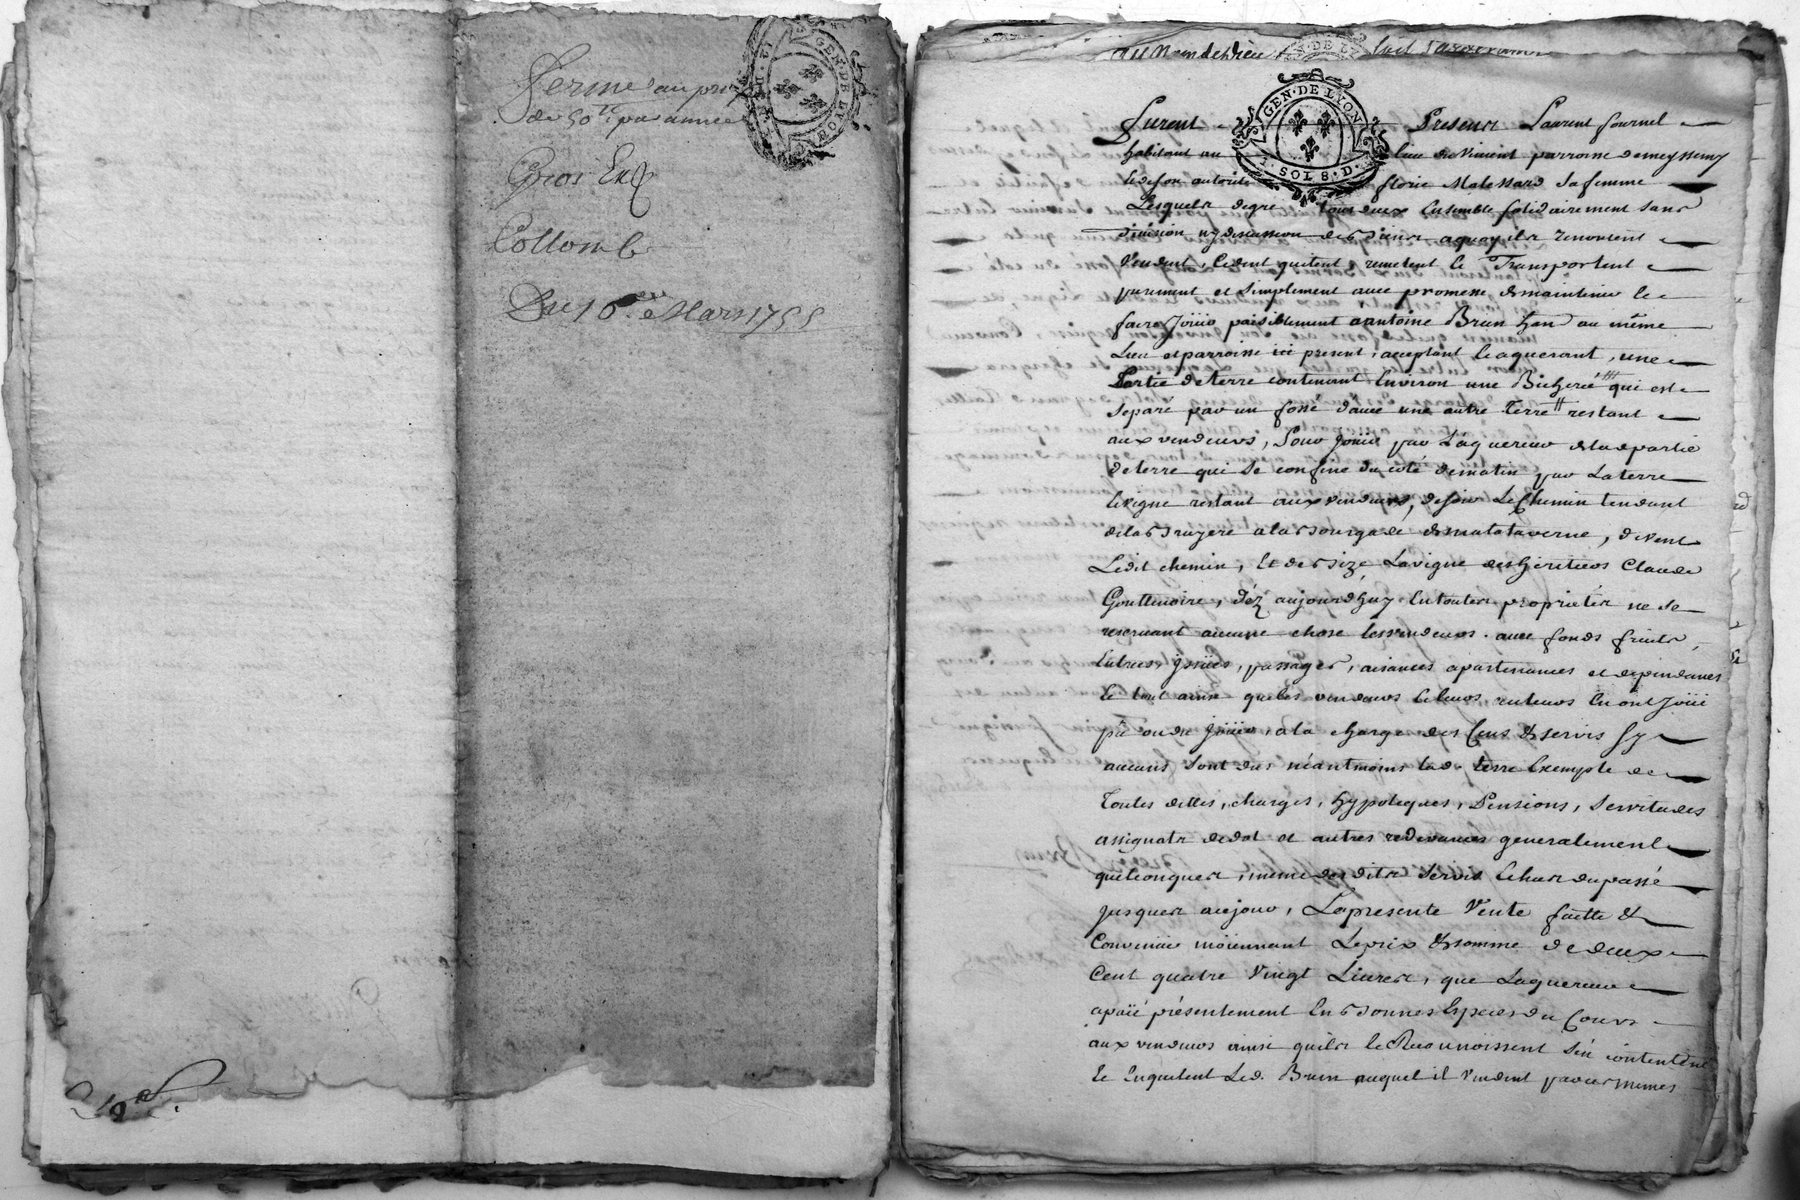 Ferme au prix
de 50 lt par année
Gros Exp
Collomb
Du 16 e Mars 1755
GEN. DE LYON
Furent Presens Laurent fournel
habitant au lieu du Vincent parroisse de meyssemy
Et de son autorité florie Malessard sa femme
Lesquels de gré tous deux Ensemble solidairement sans
division ny discussion des biens a quoy ils renoncent
Vendent, Cedent quitent, remetent et Transportent
purement et simplement avec promesse de maintenir et
faire Joüir paisiblement a antoine Brun hant au même
Lieu et parroisse ici present, acceptant et aquerant, une
Partie de terre contenant Environ une Bicherée qui est
separé par un fossé d'avec une autre Terre restant
aux vendeurs, Pour Joüir par L'aquereur de lad partie
de terre qui se confine du coté de matin par La terre
et vigne restant aux vendeurs, de soir Le Chemin tendant
de la bruyere a la bourgade de matataverne, de vent
Ledit chemin, Et de bize La vigne des héritiers Claude
Gouttenoire, Déz aujourdhuy En toutes proprietés ne se
reservant aucune chose les vendeurs. avec fonds fruits,
Entrées, Joüies, passages, aisances apartenances et dépendances
Et tout ainsi que les vendeurs et leurs auteurs En ont Joüi
pû ou dû Joüir, a la charge des Cens & servis sy
aucuns sont dus néantmoins lad. terre Exempte de
Toutes dettes, charges, hypoteques, Pensions, servitudes
assignats de dot et autres redevances generalement
quelconques, même des dits servis Echus du passé
Jusques a ce jour, La presente Vente faitte &
Convenüe moïennant Le prix & somme de deux
Cent quatre Vingt Livres, que L'aquereur
a païé présentement En bonnes Especes du Cours
aux vendeurs ainsi qu'ils le Reconnoissent s'en contentent
Et En quitent Led. Brun auquel il vendent par ces memes
GEN. DE LYON
1. SOL 8. D.